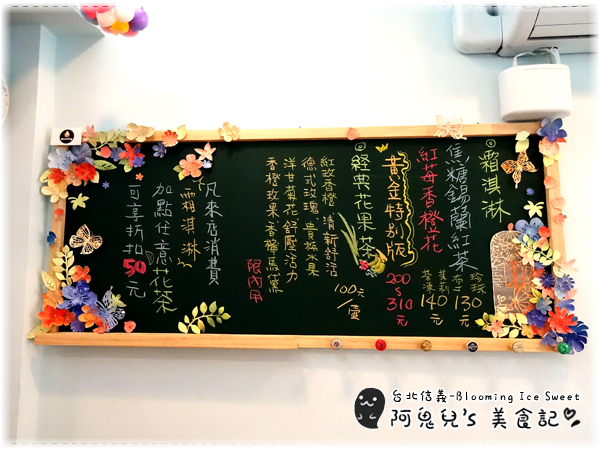 霜淇淋
焦糖錫蘭紅茶
珍珠
杏仁 130元
茉莉
芙凍 140元
紅莓香橙花
黃金特別版
200~310元
經典花果茶
100元/壺
紅玫香橙 清新舒活
德式玫瑰 貴族水果
洋甘菊花 舒壓活力
香橙玫果 香檸馬黛
限內用
凡來店消費
霜淇淋
加點任意花茶
可享折扣50元
台北信義-Blooming Ice Sweet
阿鬼兒's 美食記